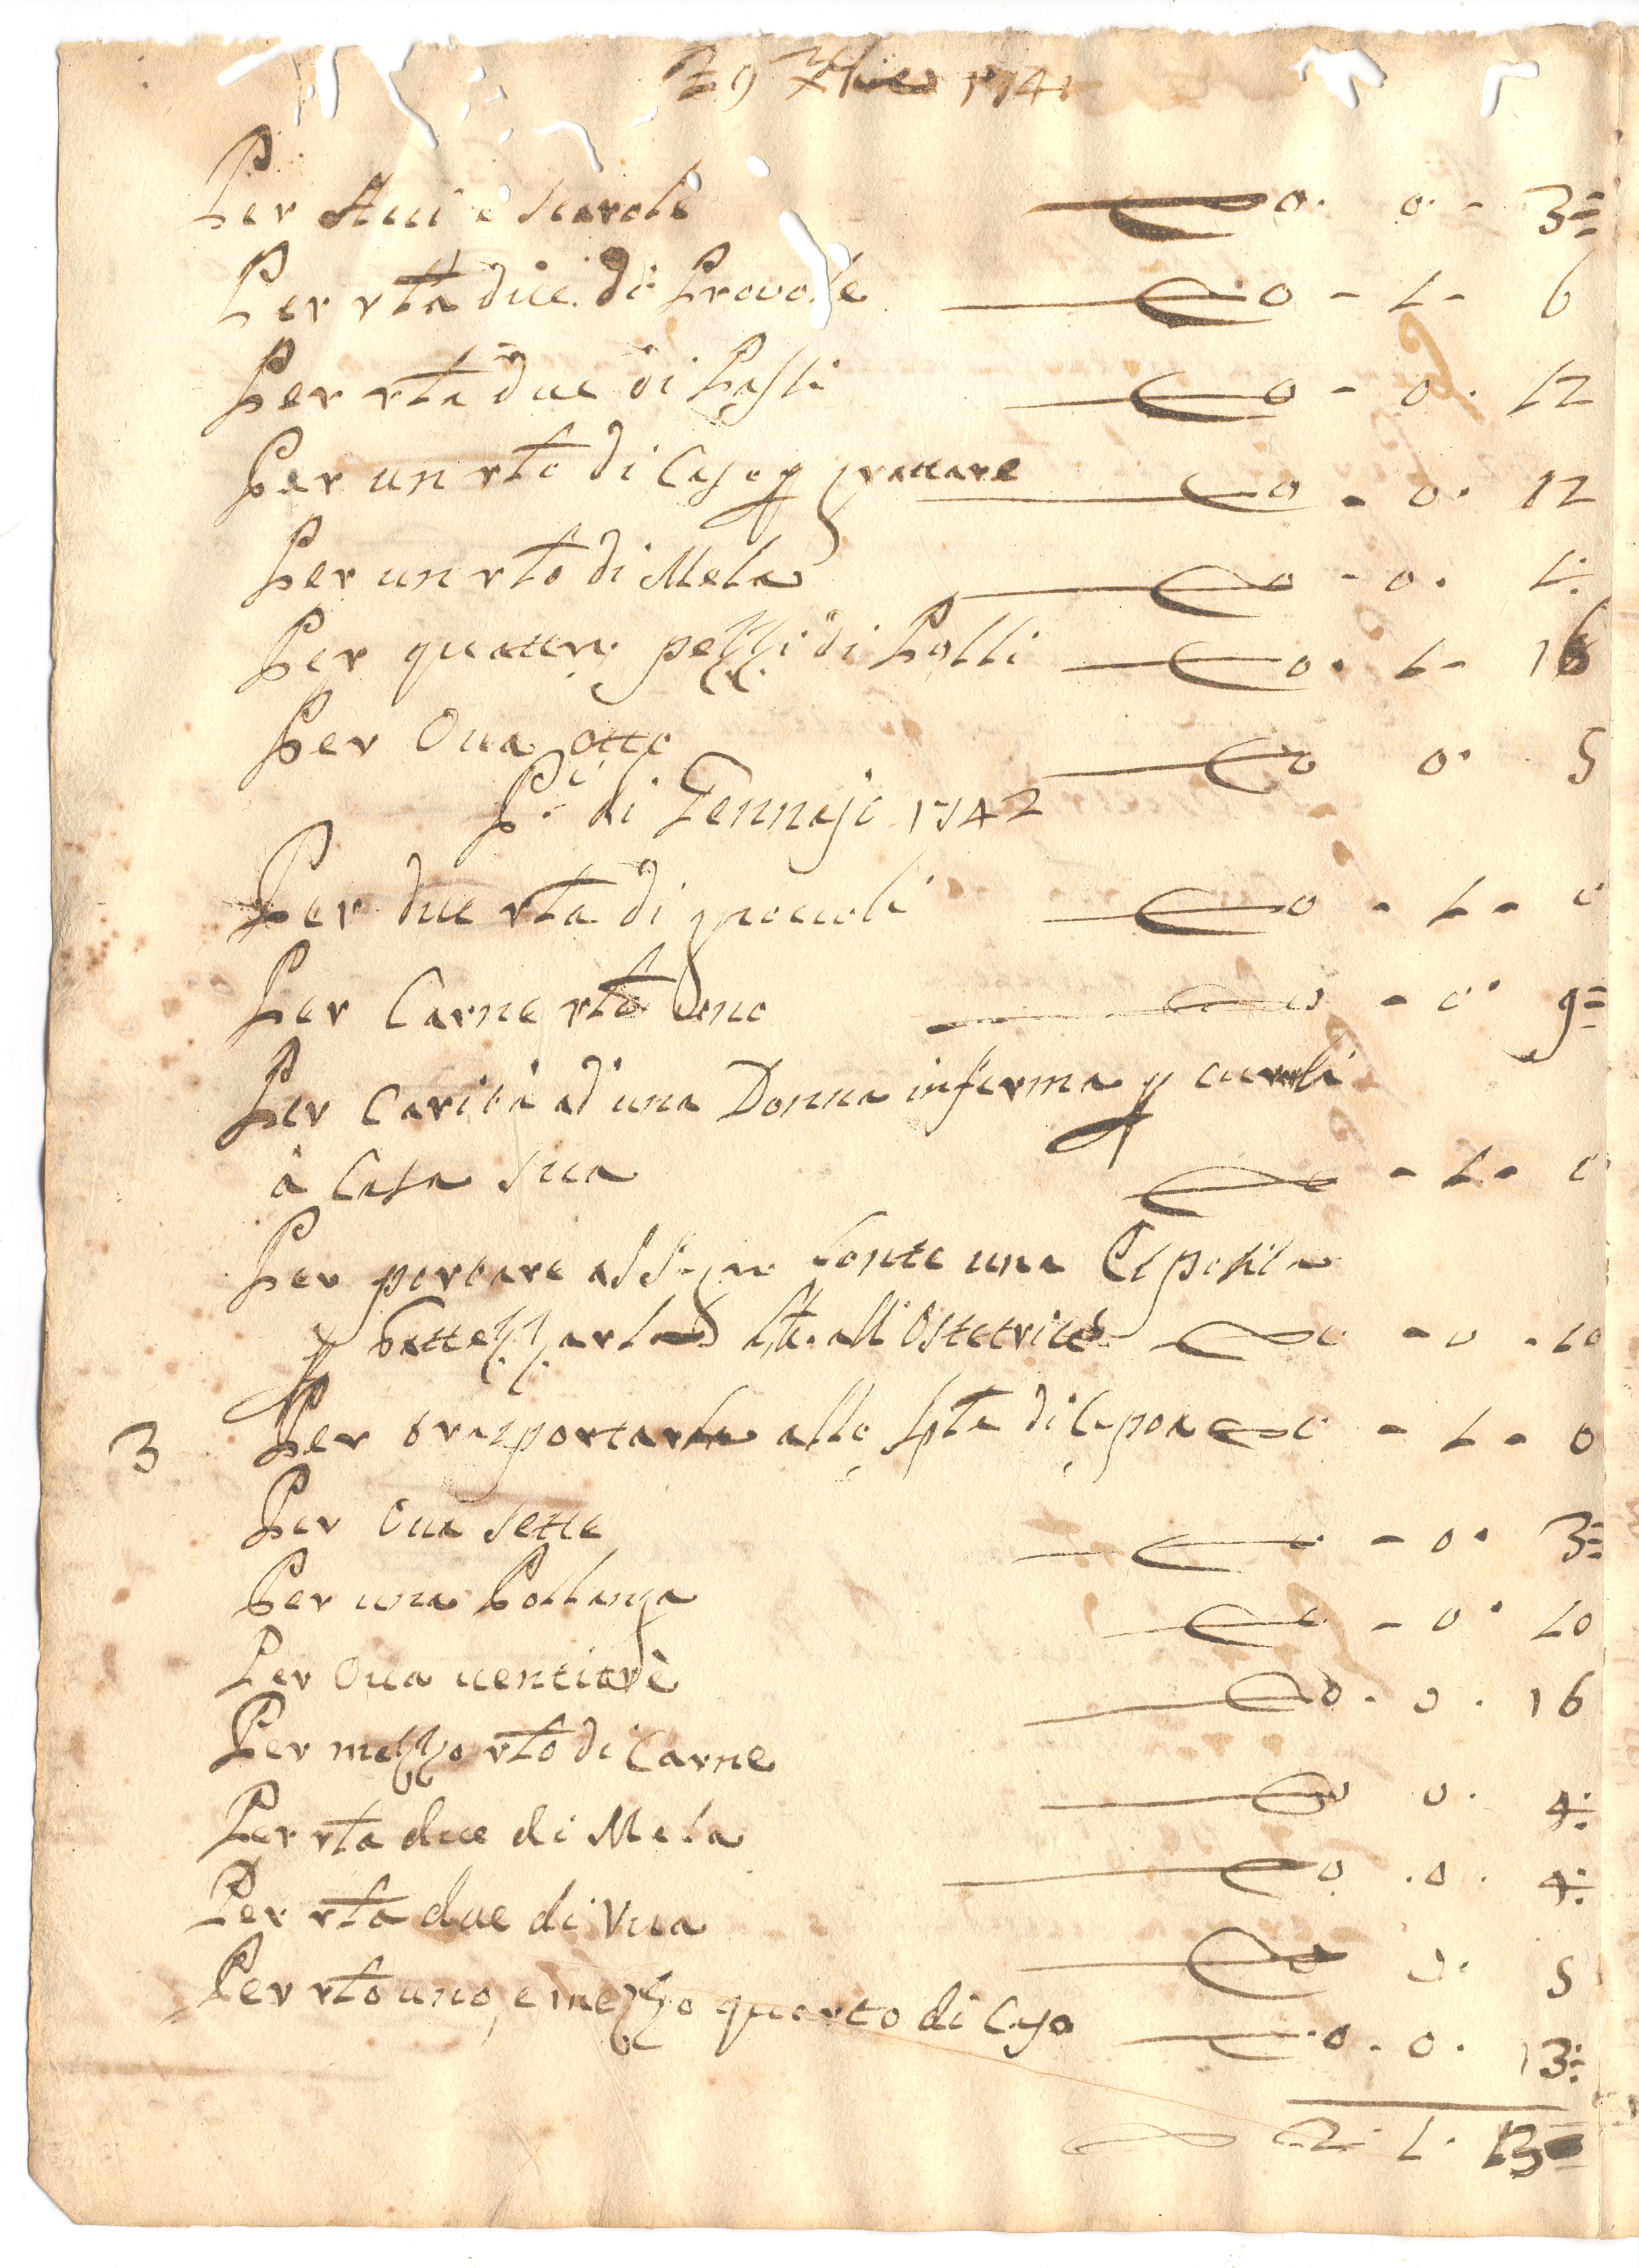 29 Xbre 1741
Per Aui e Scarole 0. 0 - 3=
Per rta due di Prouole 0 - 1 - 6
Per rta due di Pasti 0 - 0. 12
Per un rto di Caso p grattare 0 - 0. 12
Per un rto di Mela 0 - 0. 1:
Per quattro pezzi di Polli 0. 1 - 16
Per Oua otto 0 0. 5
P.o di Gennajo 1742
Per due rta di zoccoli 0 - 1 - 0
Per Carne rto Uno 0 - 0. 9=
Per Carità ad una Donna inferma p
à Casa sua 0 - 1 - 0
Per portare al fonte una Esposita
p battezzarla all' Ostetrice 0 - 0 - 10
3 Per trasportarla allo di Capoa 0 - 1 - 0
Per Oua sette 0 - 0. 3=
Per una Pollanga 0 - 0. 10
Per Oua uentitrè 0. 0. 16
Per mezzo rto di Carne 0 0. 4:
Per rta due di Mela 0 . 0. 4:
Per rta due di Vua 0 0. 5
Per rto uno, e mezzo quarto di Caso 0. 0. 13:
2. 1. 13=